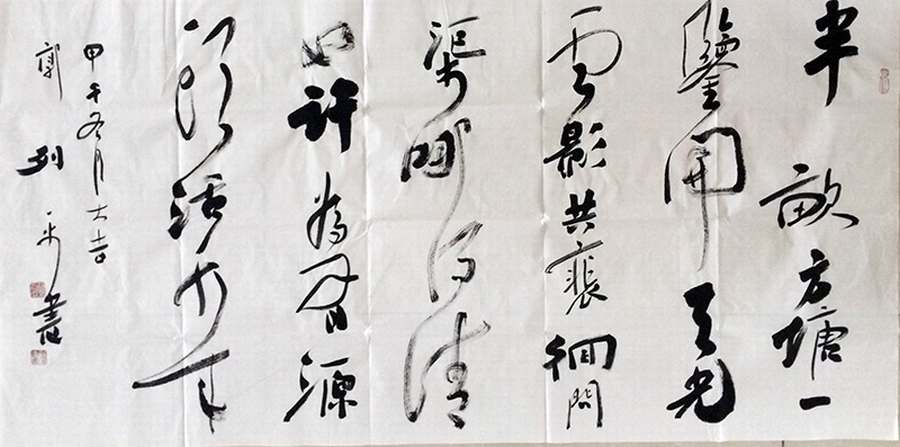 半畝方塘一
鑒開天光
雲影共裴徊問
渠那得清
如許為有源
頭活水来
甲午冬月大吉
郭列平書